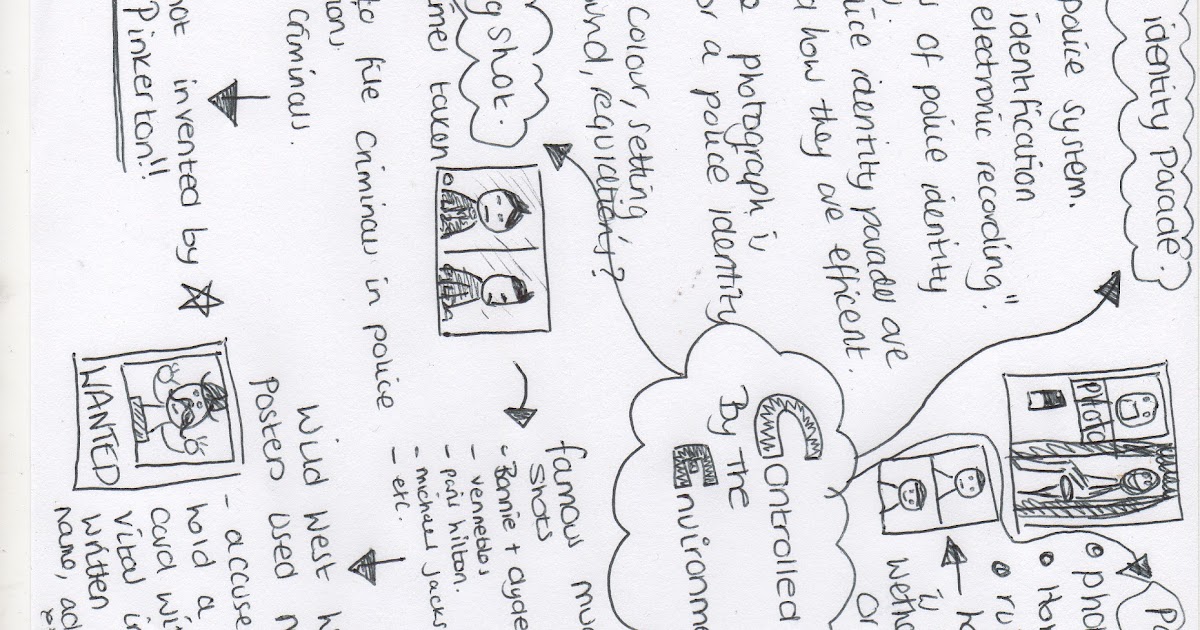 identity Parade?
police system.
identification
electronic recording."
of police identity
identity parades are
how they are efficent.
photograph is
or a police identity
Colour, setting
requlations?
g shot.
taken
to file criminals in police
criminals.
not invented by
Pinkerton!!
Photo
Controlled
By The
Environme
famous mu
shots
- Bonnie + clyde
- vennebles
- paris hilton.
- michael Jacks
- etc.
Wild West
Posters used
WANTED
- accuse
hold a
card wi
vital in
written
name, ad
Pa
phot
or
is